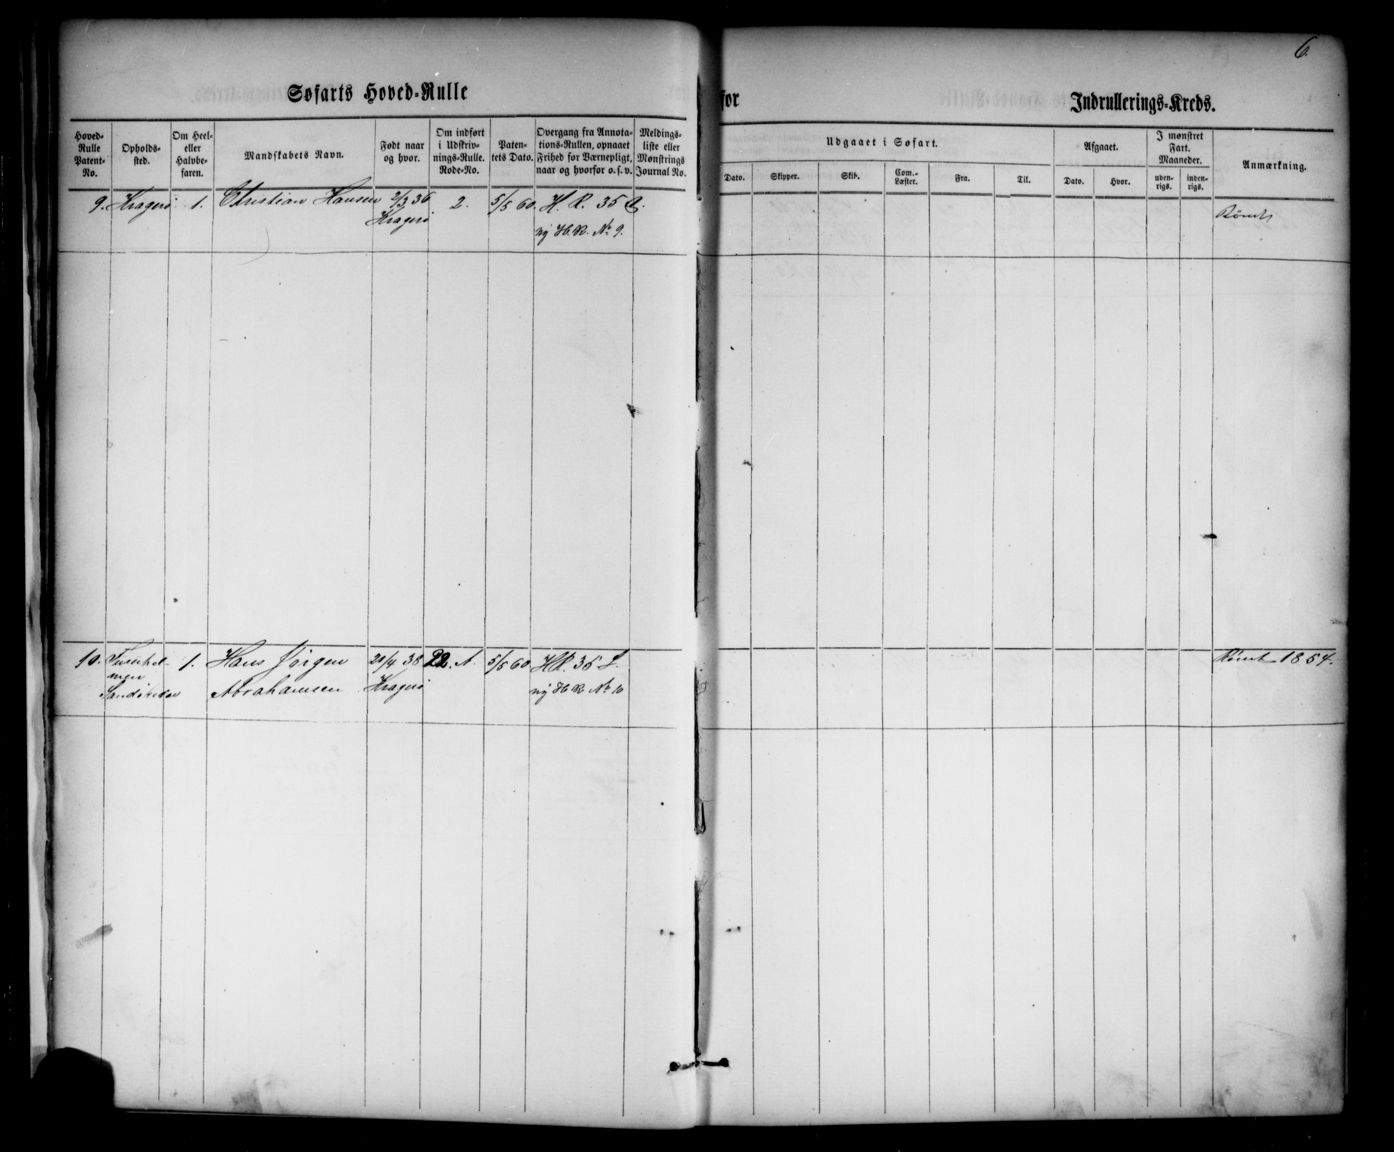 6
Søfarts Hoved-Rulle for Indrullerings-Kreds.
Hoved-Rulle Patent-No.
Opholds-sted.
Om Heel- eller Halvbe-faren.
Mandskabets Navn.
Født naar og hvor.
Om indført i Udskriv-nings-Rulle. Rode-No.
Paten-tets Dato.
Overgang fra Annota-tions-Rullen, opnaaet Frihed for Værnepligt, naar og hvorfor o. s. v.
Meldings-liste eller Mønstrings Journal No.
Udgaaet i Søfart.
Dato.
Skipper.
Skib.
Com.-Læster.
Fra.
Til.
Afgaaet.
Dato.
Hvor.
I mønstret Fart. Maaneder.
uden-rigs.
inden-rigs.
Anmærkning.
9. Kragerø 1. Christian Hansen 2/3 36 2. 5/5 60. H. R. 36
Kragerø ny H.R. No 9.
10. 1. Hans Jörgen 21/4 38 22. A. 5/5 60 HR. 36 1854.
Abrahamsen Kragerø ny H.R. No 10